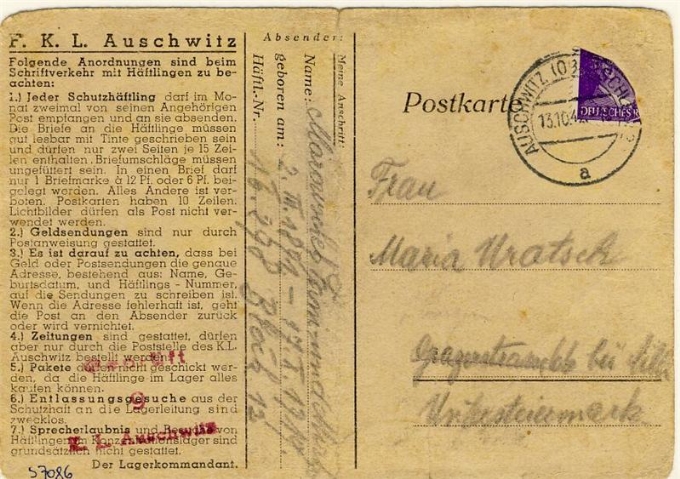 F. K. L. Auschwitz
Folgende Anordnungen sind beim
Schriftverkehr mit Häftlingen zu be-
achten:
1.) Jeder Schutzhäftling darf im Mo-
nat zweimal von seinen Angehörigen
Post empfangen und an sie absenden.
Die Briefe an die Häftlinge müssen
gut lesbar mit Tinte geschrieben sein
und dürfen nur zwei Seiten je 15 Zei-
len enthalten. Briefumschläge müssen
ungefüttert sein. In einen Brief darf
nur 1 Briefmarke à 12 Pf. oder 6 Pf. bei-
gelegt werden. Alles Andere ist ver-
boten. Postkarten haben 10 Zeilen.
Lichtbilder dürfen als Post nicht ver-
wendet werden.
2.) Geldsendungen sind nur durch
Postanweisung gestattet.
3.) Es ist darauf zu achten, dass bei
Geld oder Postsendungen die genaue
Adresse, bestehend aus: Name, Ge-
burtsdatum, und Häftlings - Nummer,
auf die Sendungen zu schreiben ist.
Wenn die Adresse fehlerhaft ist, geht
die Post an den Absender zurück
oder wird vernichtet.
4.) Zeitungen sind gestattet, dürfen
aber nur durch die Poststelle des K.L.
Auschwitz bestellt werden.
5.) Pakete dürfen nicht geschickt wer-
den, da die Häftlinge im Lager alles
kaufen können.
6.) Entlassungsgesuche aus der
Schutzhaft an die Lagerleitung sind
zwecklos.
7.) Sprecherlaubnis und Besuche von
Häftlingen im Konzentrationslager sind
grundsätzlich nicht gestattet.
Der Lagerkommandant.
9
K. L. Auschwitz
57086
Absender:
Meine Anschrift:
Name:
geboren am: 2. III.
Häftl.-Nr. 16.298 Block 12
Postkarte
AUSCHWITZ (O
13.10.4
a
DEUTSCHES R
Frau
Maria Uratsch
bei Cilli
Untersteiermark